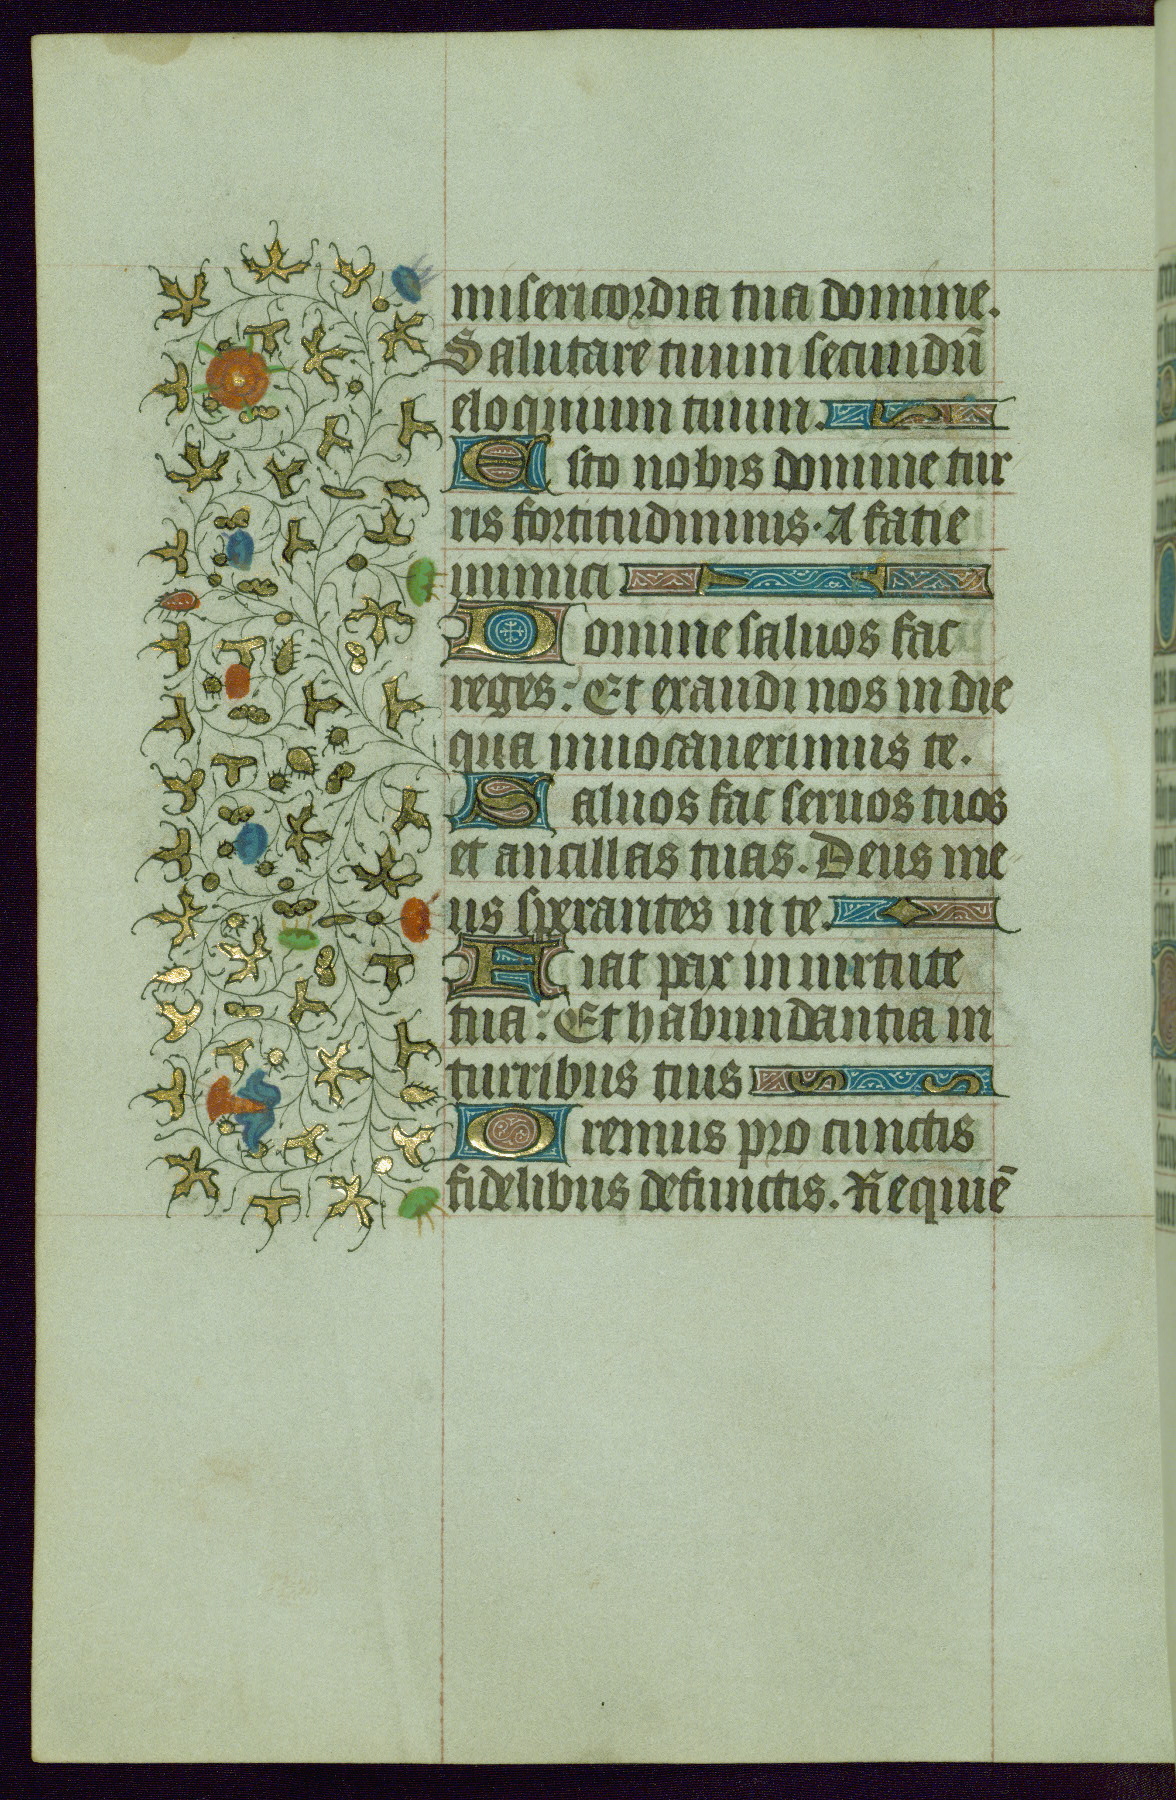 misericordia tua domine.
Salutare tuum secundū
eloquium tuum.
Esto nobis domine tur
ris fortitudininis. A facie
inimici
Domine saluos fac
reges: Et exaudi nos in die
qua inuocauerimus te.
Saluos fac seruos tuos
et ancillas tuas. Deus me
us sperantes in te.
Fiat pax in uirtute
tua: Et habundantia in
turribus tuis
Oremus pro cunctis
fidelibus defunctis. Requiē